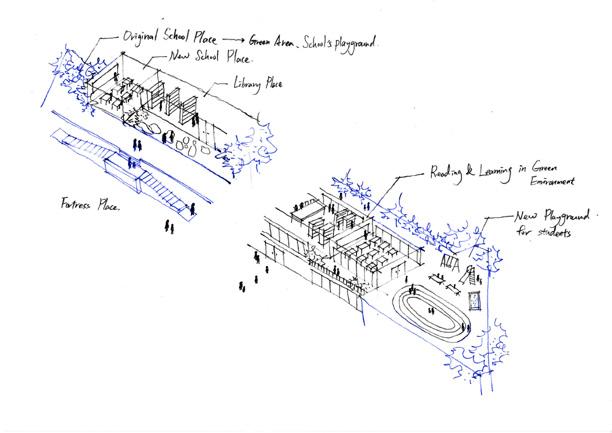 Original School Place → Green Area. School's playground.
New School Place.
Library Place
Fortress Place.
Reading & Learning in Green
Enviroment
New Playground
for students